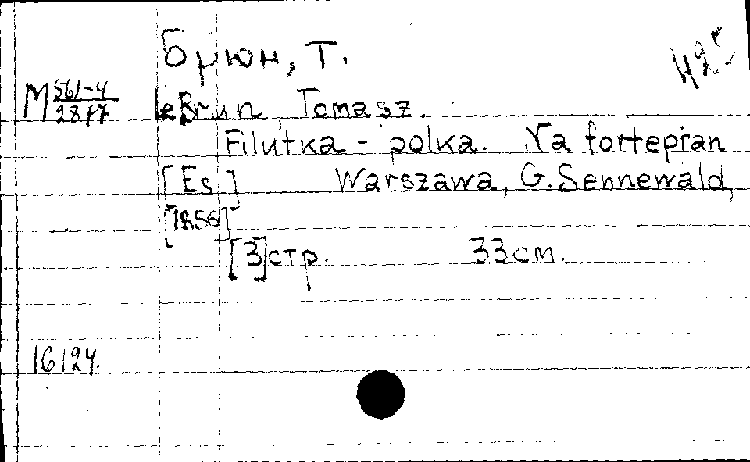 Брюн, Т.
М 561-4
le Brun, Tomasz.
Filutka - polka. Na fortepian
[Es] Warszawa, G. Sennewald,
[1856]
[3] стр. 33 см.
16124